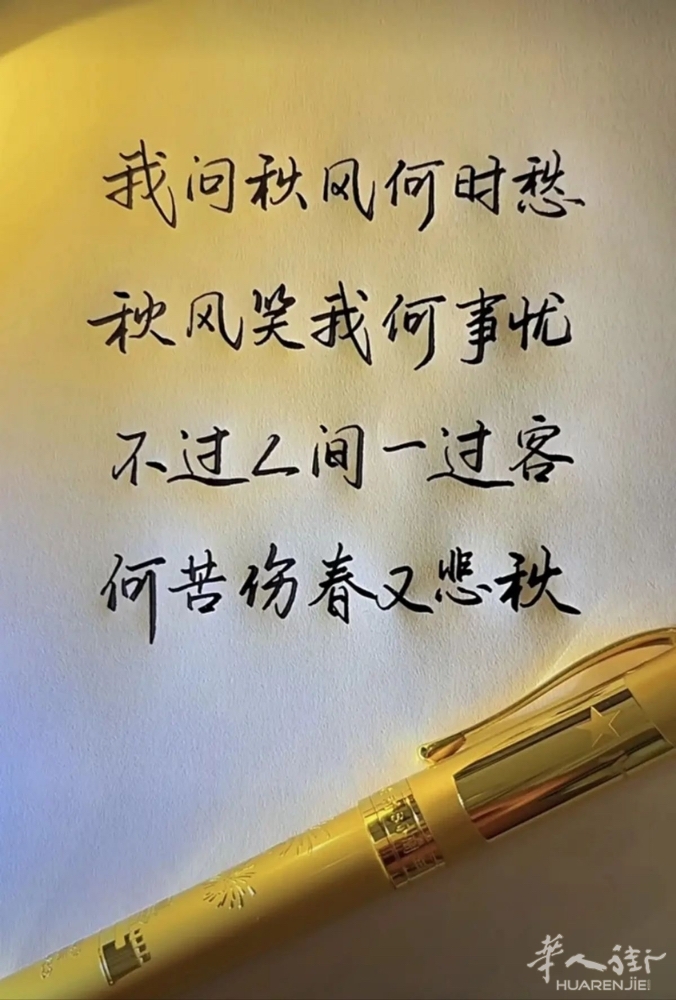 我问秋风何时愁
秋风笑我何事忧
不过人间一过客
何苦伤春又悲秋
華人街
HUARENJIE